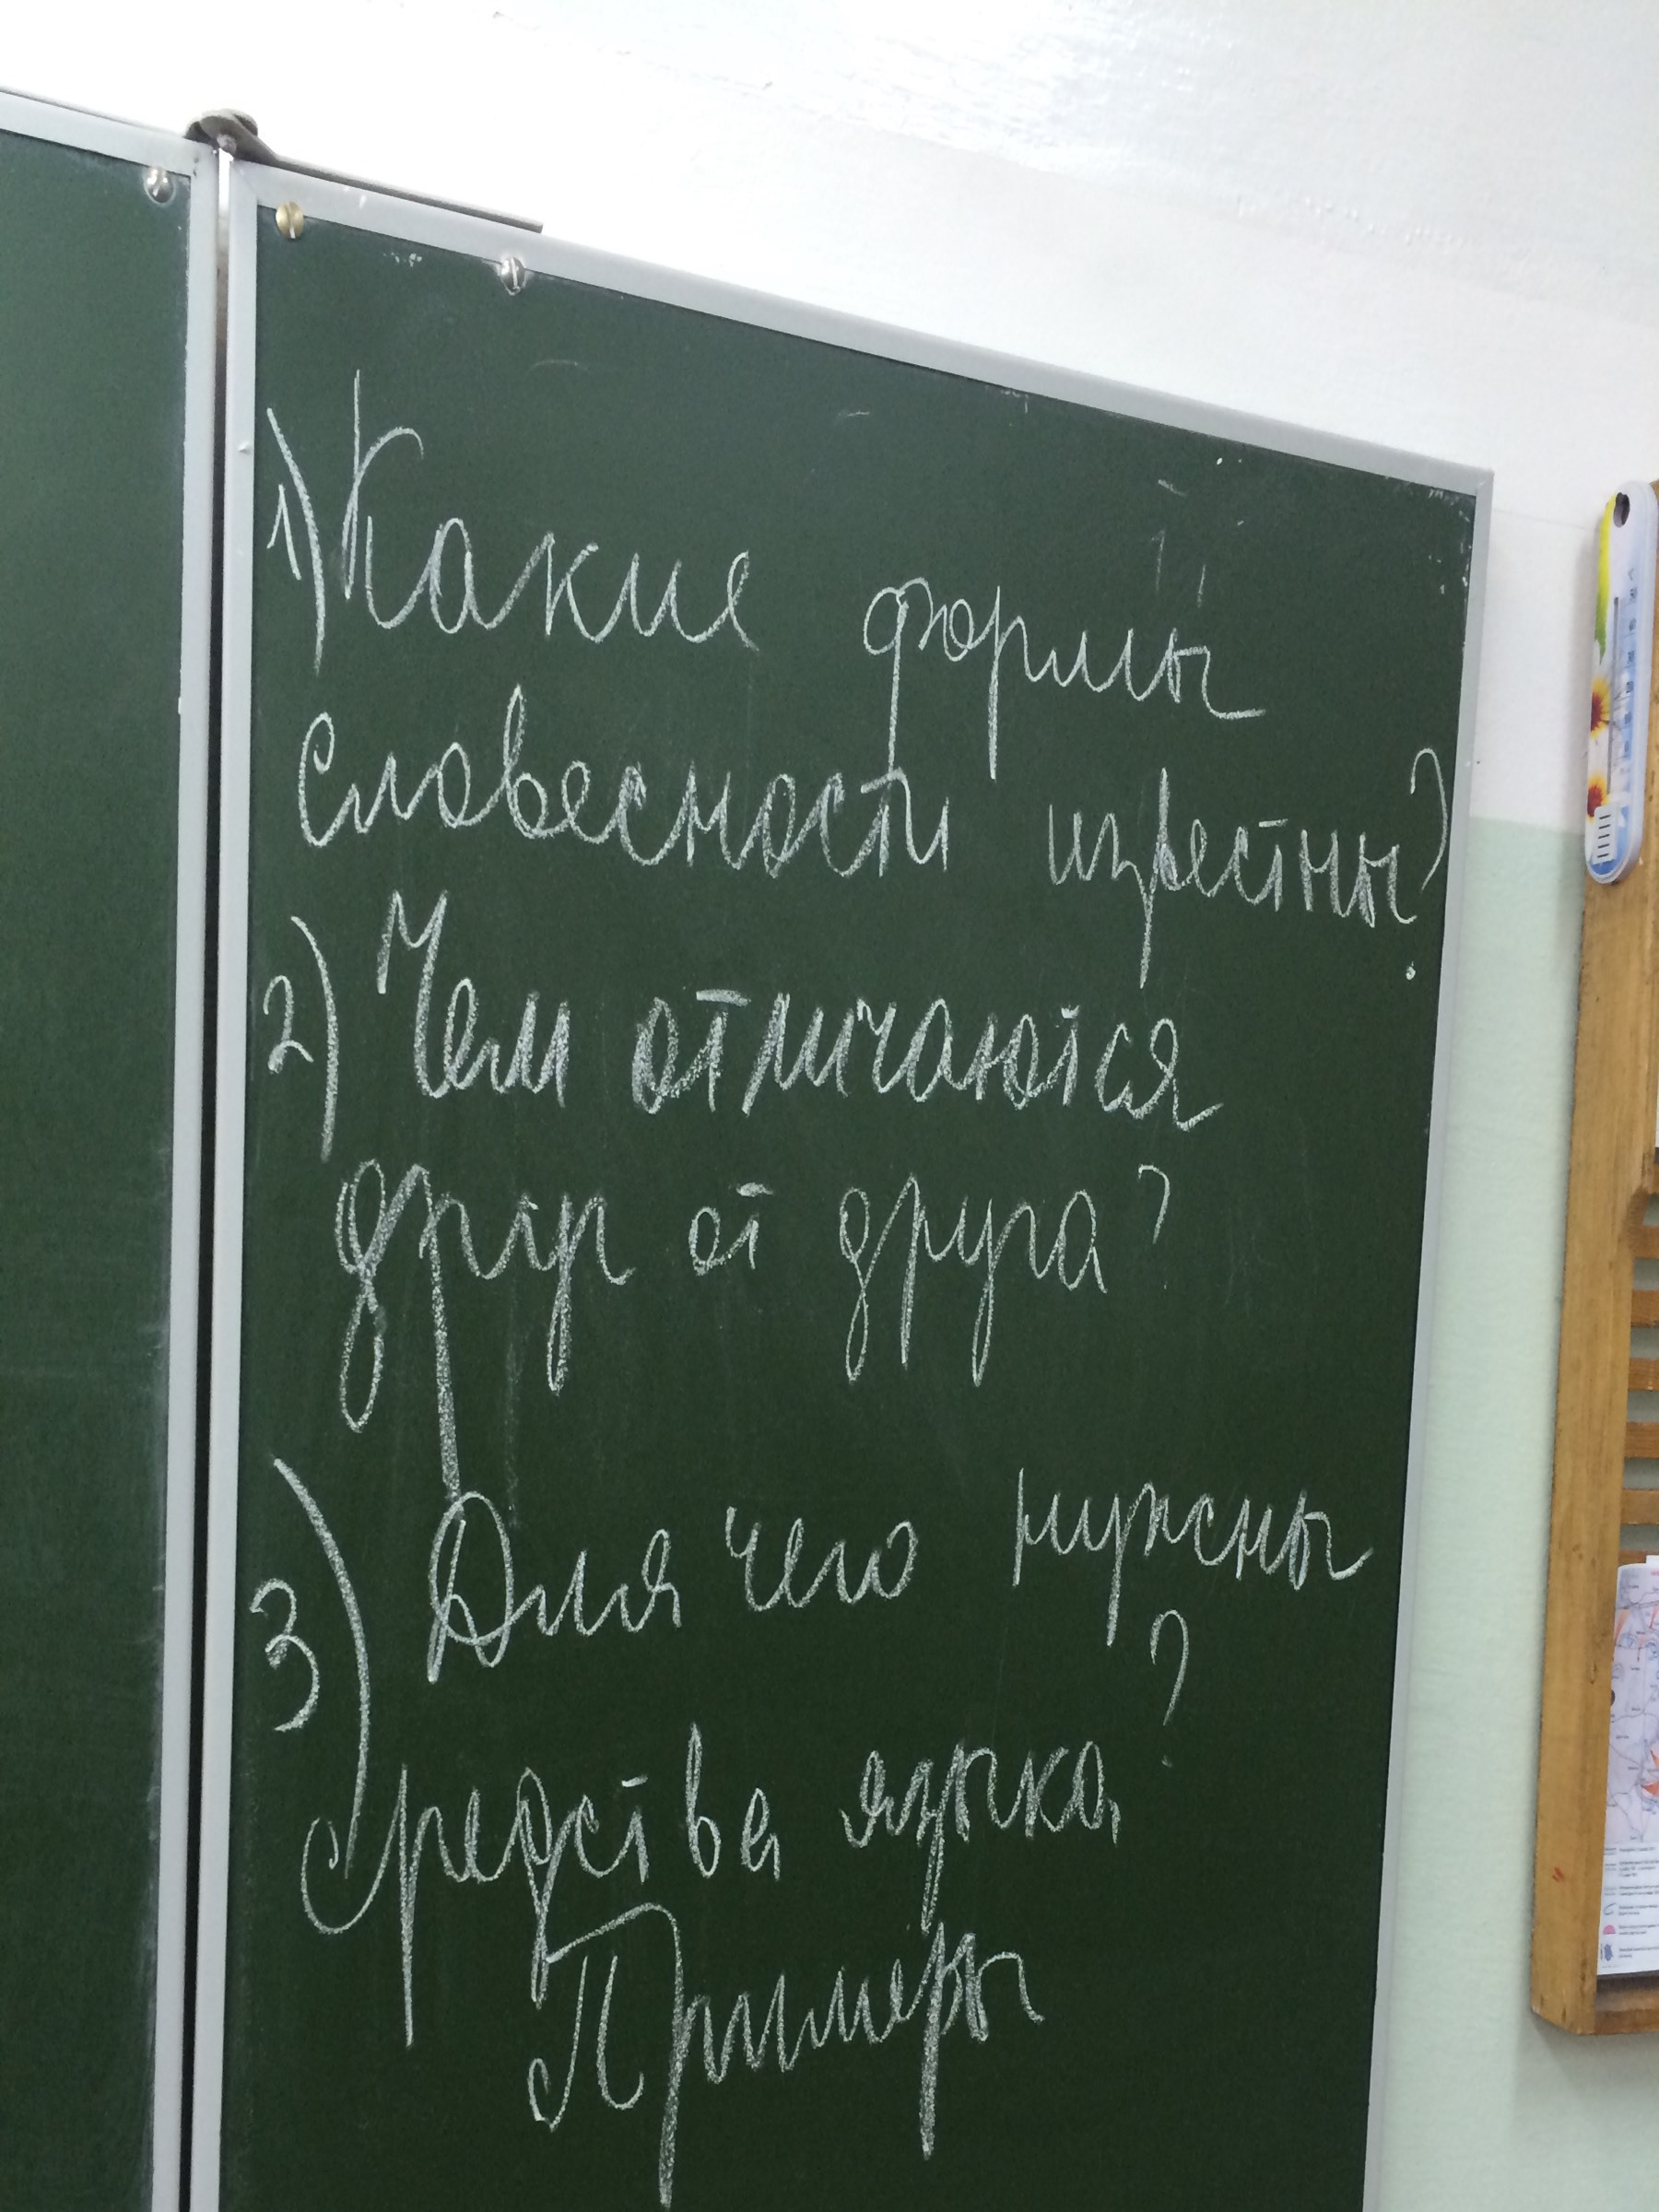 1) Какие формы
словесности известны?
2) Чем отличаются
друг от друга?
3) Для чего нужны
средства языка?
Примеры